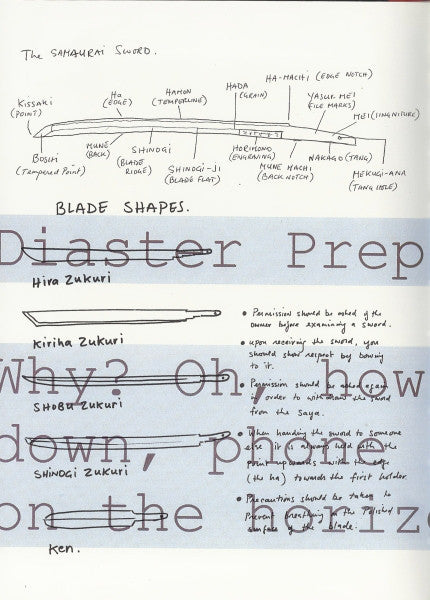 The SAMAURAI SWORD.
HA-MACHI (EDGE NOTCH)
HADA
(GRAIN)
HAMON
(TEMPERLINE)
Ha
(EDGE)
YASURI MEI
(FILE MARKS)
KISSAKI
(POINT)
MEI (SINGNITURE)
MUNE
(BACK)
SHINOGI
(BLADE
RIDGE)
SHINOGI-JI
(BLADE FLAT)
HORIMONO
(ENGRAVING)
MUNE MACHI
(BACK NOTCH)
NAKAGO (TANG)
MEKUGI-ANA
(TANG HOLE)
BOSHI
(Tempered Point)
BLADE SHAPES.
Diaster Prep
Hira Zukuri
Kiriha Zukuri
• Permission should be asked of the
owner before examining a sword.
• upon receiving the sword, you
should show respect by bowing
to it.
Why? Oh, how
SHOBU Zukuri
• Permission should be asked again
in order to withdraw the sword
from the saya.
down, phone
SHINOGI Zukuri
• When handing the sword to someone
else it is always held with the
point upwards with the edge
(the ha) towards the first holder.
on the horizo
• Precautions should be taken to
Prevent breathing on the Polished
surface of the blade.
Ken.